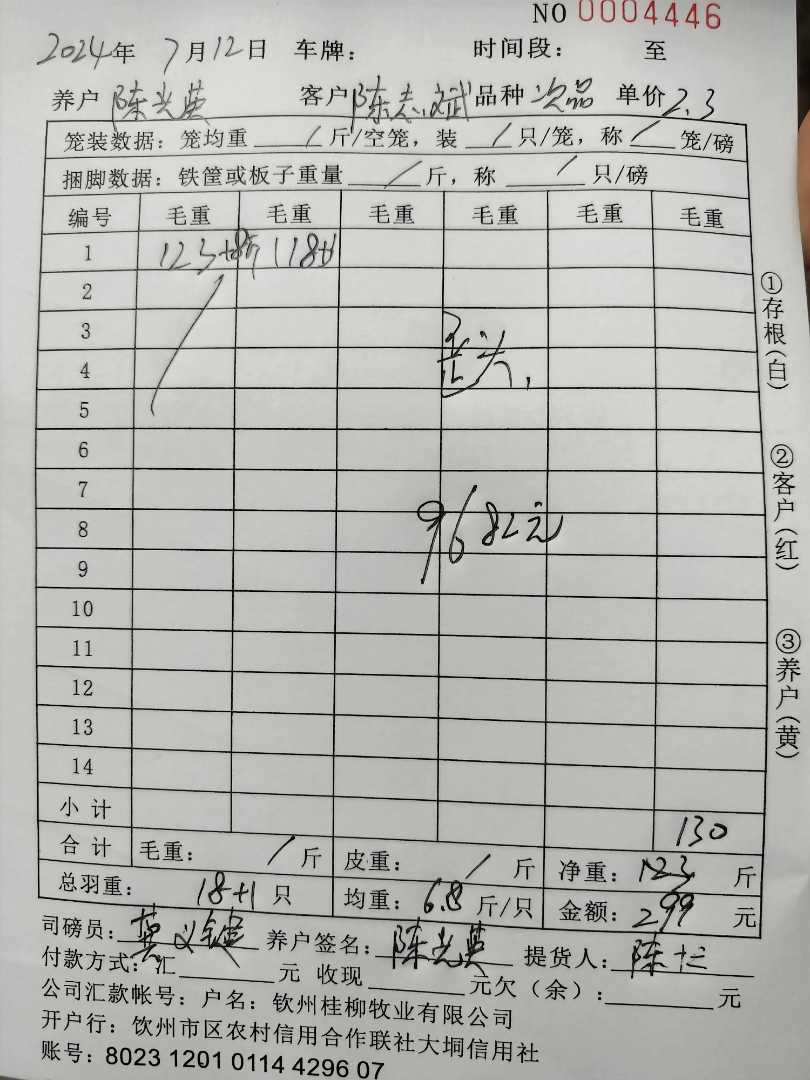 NO 0004446
2024年 7月12日 车牌： 时间段： 至
养户 陈光英 客户 陈志斌 品种 次品 单价 2.3
笼装数据：笼均重 / 斤/空笼，装 / 只/笼，称 / 笼/磅
捆脚数据：铁筐或板子重量 / 斤，称 / 只/磅
编号 毛重 毛重 毛重 毛重 毛重 毛重
1 123 18+1
2
3
4 歪头，
5
6
7
8 9682元
9
10
11
12
13
14
小计 130
合计 毛重： / 斤 皮重： / 斤 净重：123 斤
总羽重： 18+1 只 均重：6.8 斤/只 金额：299 元
司磅员： 养户签名：陈光英 提货人：陈
付款方式：汇 元 收现 元欠（余）： 元
公司汇款帐号：户名：钦州桂柳牧业有限公司
开户行：饮州市区农村信用合作联社大垌信用社
账号：8023 1201 0114 4296 07
①存根（白） ②客户（红） ③养户（黄）